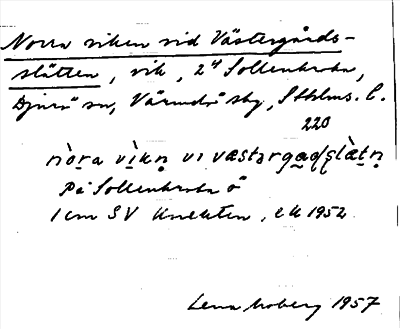 Norra viken vid Västergårds-
slätten, vik, 2⁴ Sollenkroka,
Djurö sn, Värmdö sky, Sthlms. l.
220
nòra vìkṇ vi væstərga̤ḍṣlæ̀tṇ
På Sollenkroka ö
1 cm SV Knekten, ek 1952
Lena Moberg 1957